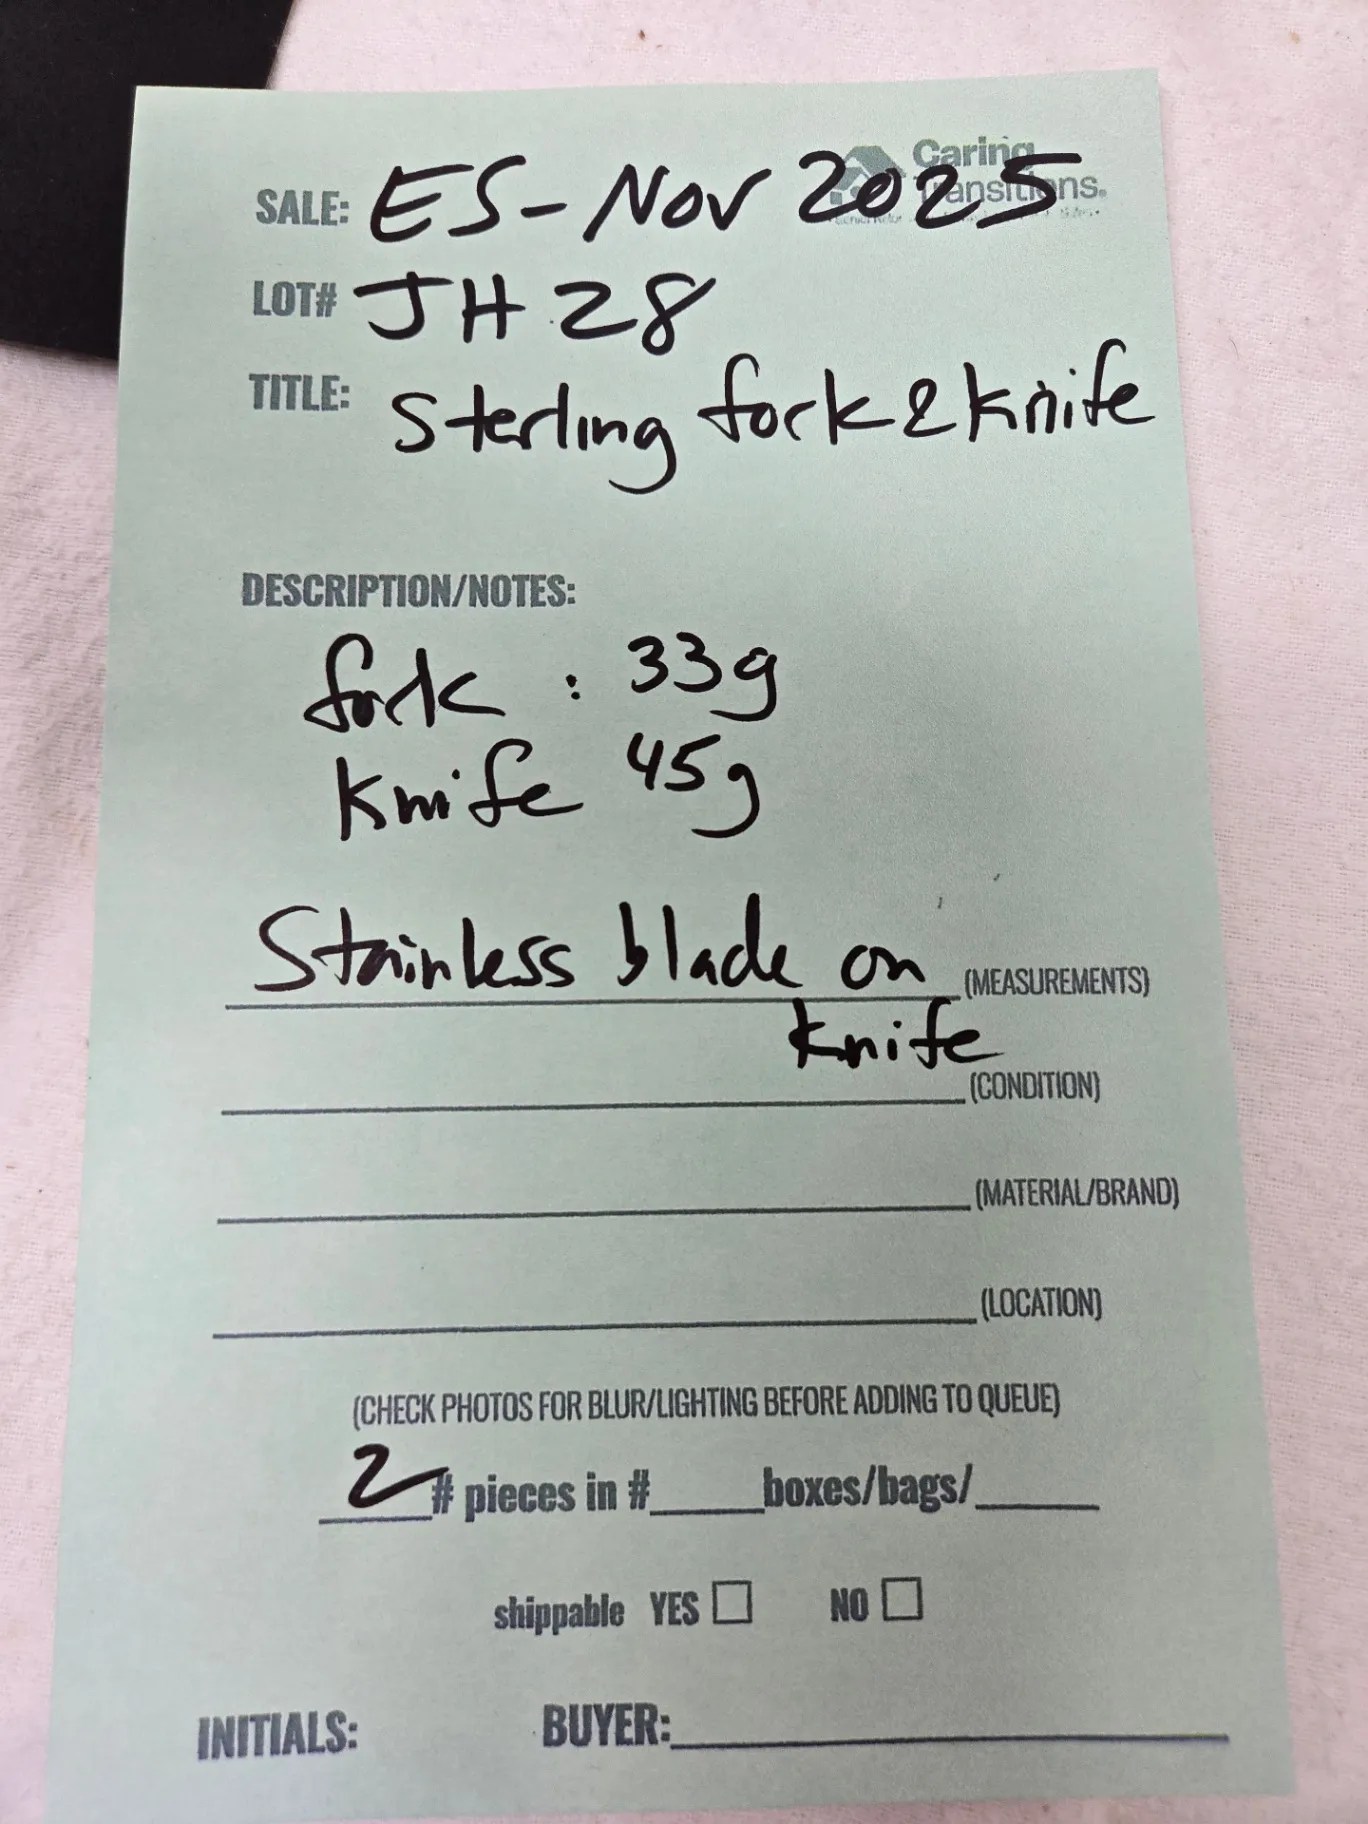 Caring
Transitions®
SALE: ES-Nov 2025
LOT# JH 28
TITLE: Sterling fork & knife
DESCRIPTION/NOTES:
fork : 33g
knife 45g
Stainless blade on (MEASUREMENTS)
knife
(CONDITION)
(MATERIAL/BRAND)
(LOCATION)
(CHECK PHOTOS FOR BLUR/LIGHTING BEFORE ADDING TO QUEUE)
2 # pieces in #____boxes/bags/____
shippable YES ☐ NO ☐
INITIALS: BUYER:____